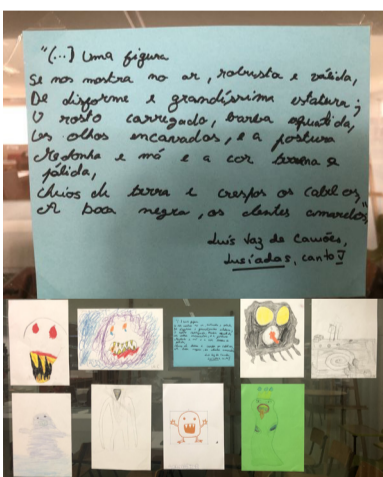 "(...) Uma figura
Se nos mostra no ar, robusta e válida,
De disforme e grandíssima estatura;
O rosto carregado, barba esquálida,
Os olhos encavados, e a postura
Medonha e má e a cor terrena e
pálida,
Cheios de terra e crespos os cabelos,
A boca negra, os dentes amarelos"
Luís Vaz de Camões,
Lusíadas, canto V